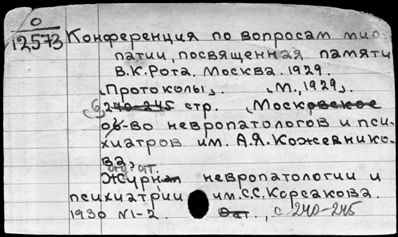 О
12573
Конференция по вопросам мио
патии, посвященная памяти
В.К.Рота. Москва. 1929.
"Протоколы". "М., 1929".
240-245 стр. "Московское
об-во невропатологов и пси-
хиатров им. А.Я.Кожевнико-
ва,
отд. от.
Журн невропатологии и
психиатрии им. С.С.Корсакова.
1930 №1-2. , с. 240-245